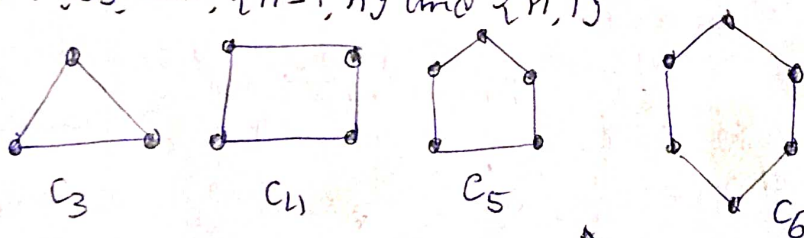 {n-1, n} and {n, 1}
C3 C4 C5 C6